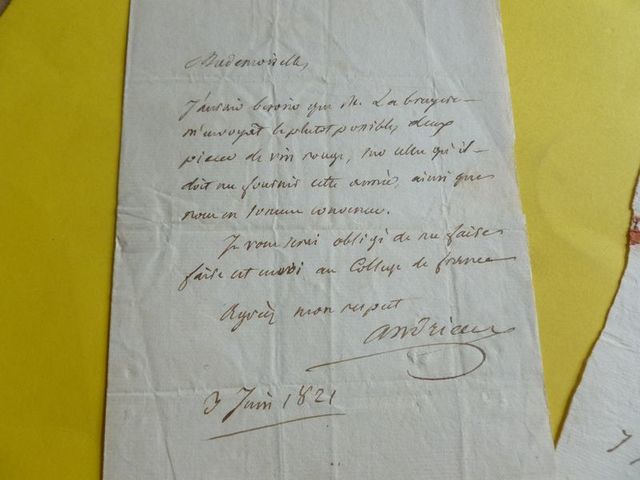 Mademoiselle,
J'aurais besoin que M. La bruyere
m'envoyât le plutot possible, deux
pieces de vin rouge, sur celles qu'il
doit me fournir cette année, ainsi que
nous en sommes convenus.
Je vous serai obligé de me faire
faire cet envoi au College de france
Agréez mon respect
andrieux
3 Juin 1821